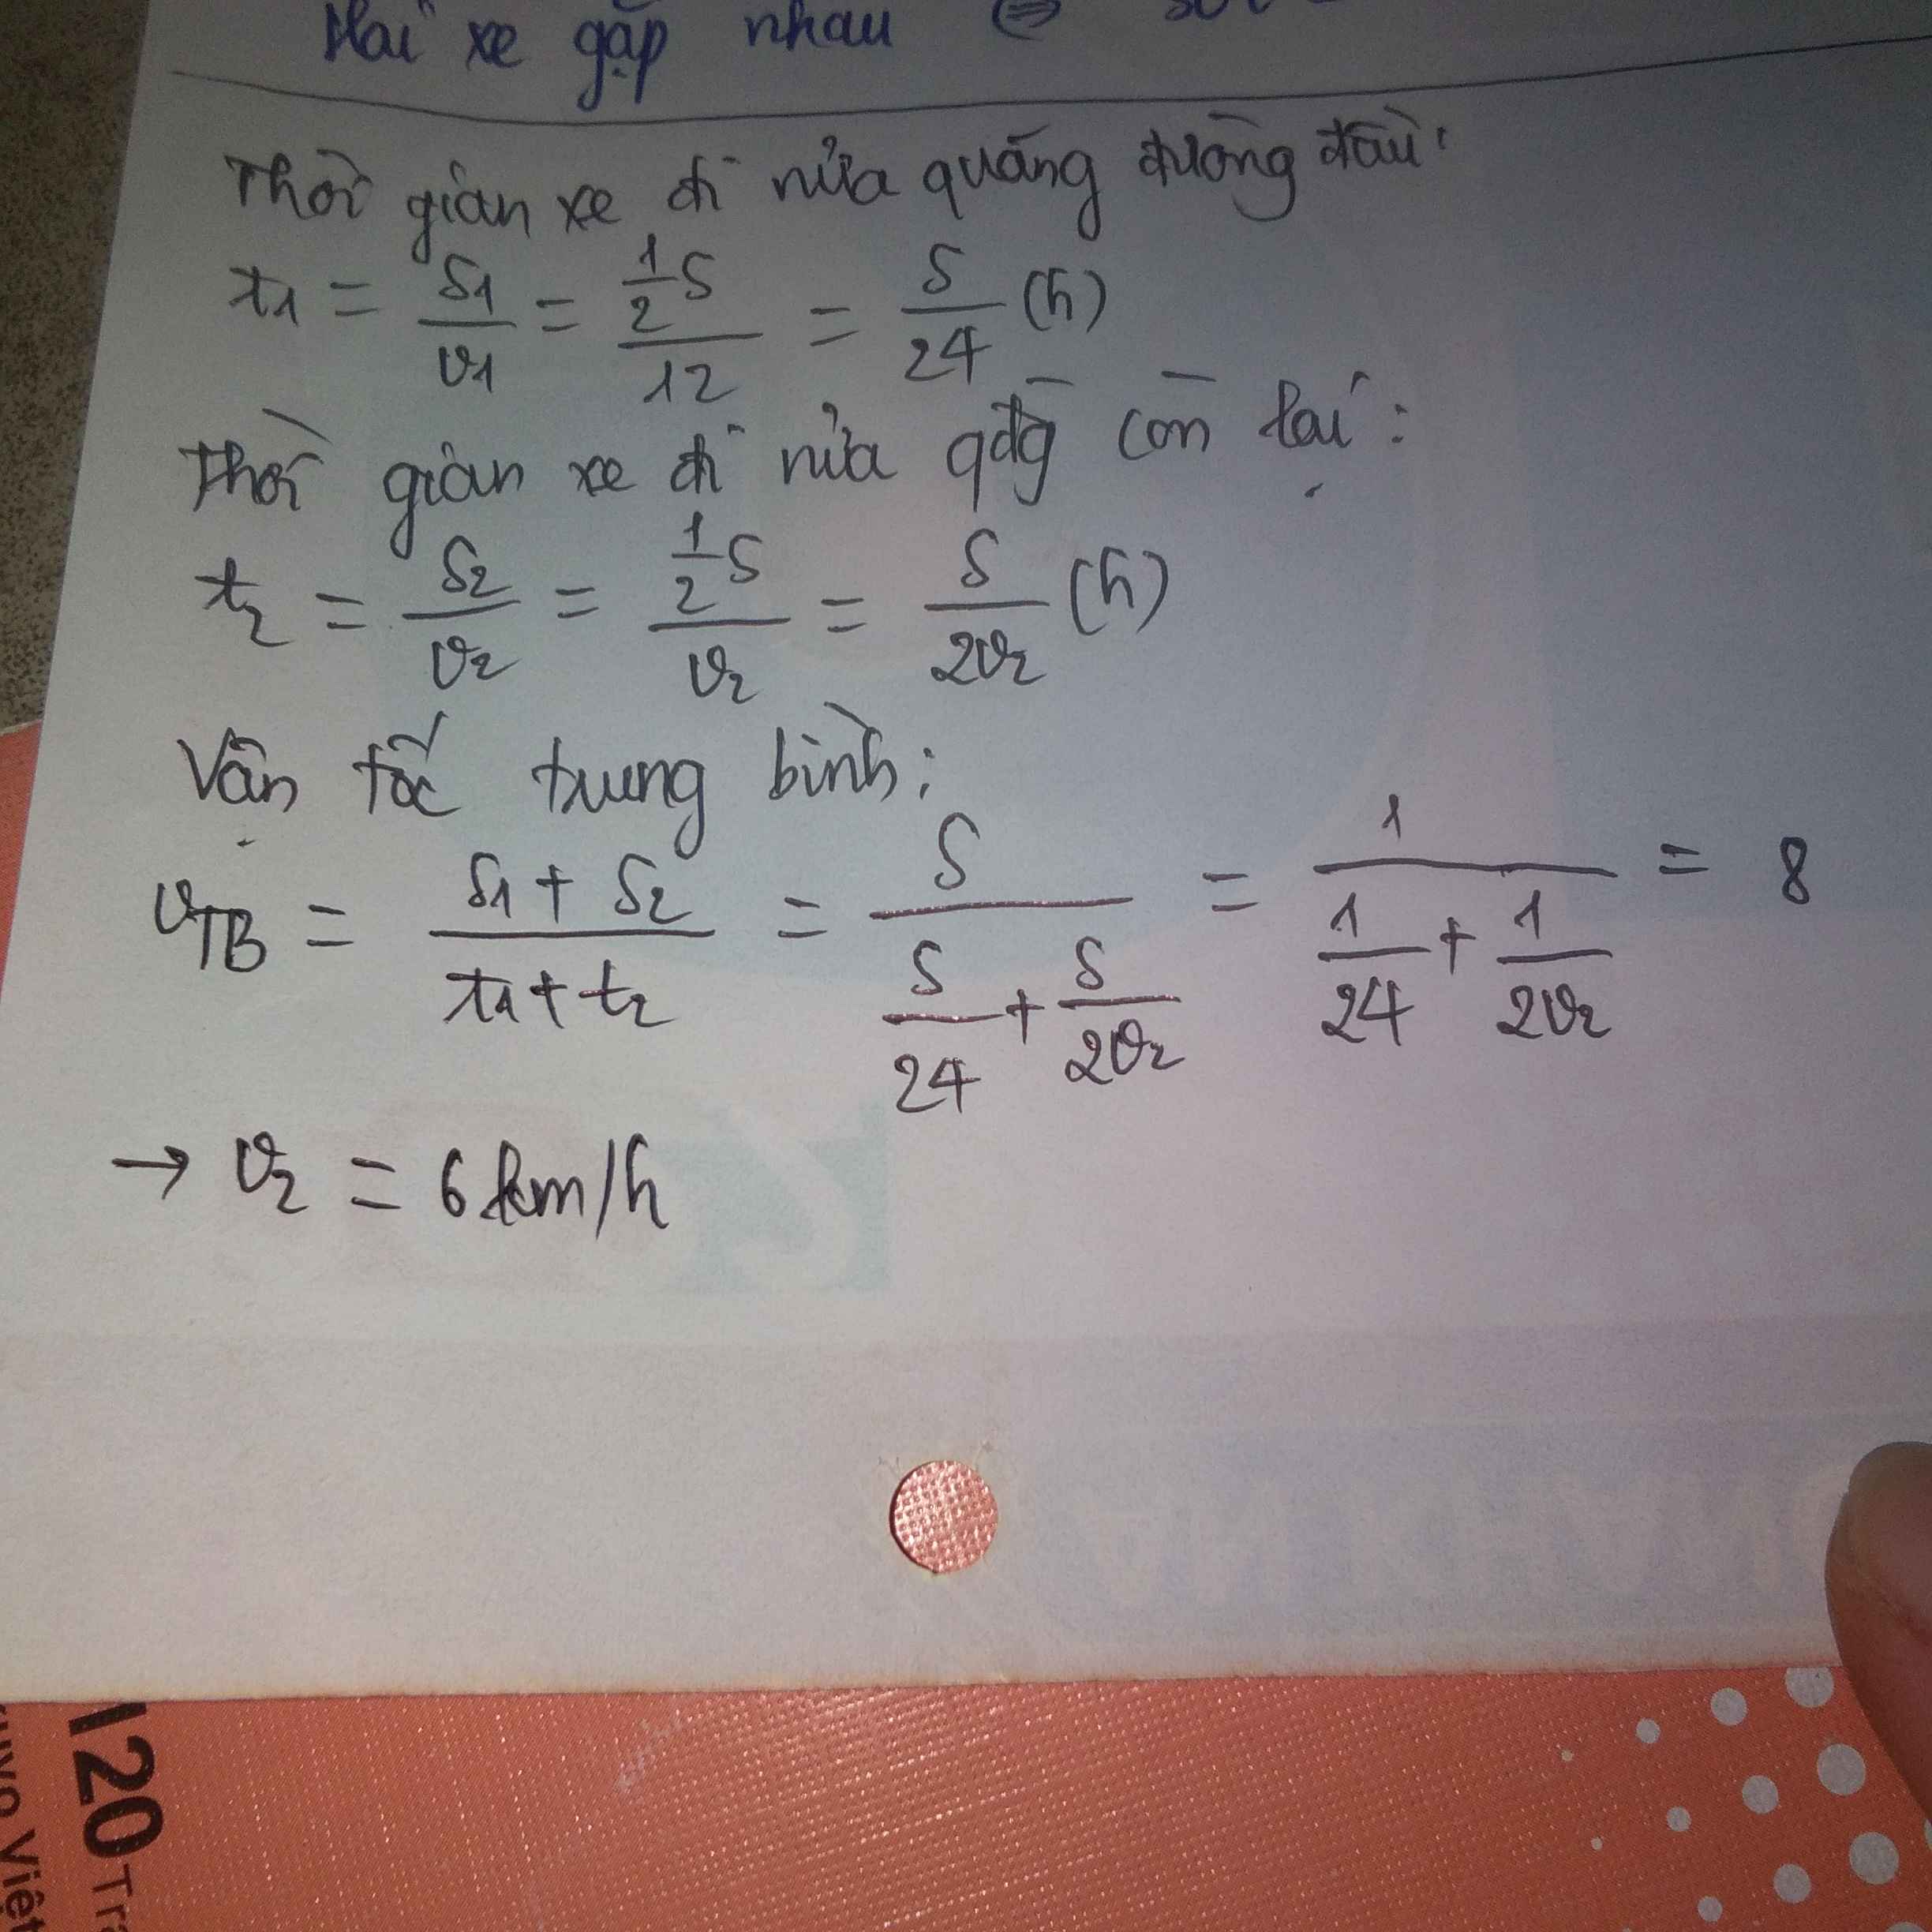 Hai xe gặp nhau ⇔
Thời gian xe đi nửa quãng đường đầu:
t₁ = S₁/v₁ = (1/2 S)/12 = S/24 (h)
Thời gian xe đi nửa qđg còn lại:
t₂ = S₂/v₂ = (1/2 S)/v₂ = S/2v₂ (h)
Vận tốc trung bình:
v_TB = (S₁ + S₂)/(t₁ + t₂) = S/(S/24 + S/2v₂) = 1/(1/24 + 1/2v₂) = 8
→ v₂ = 6 km/h
120